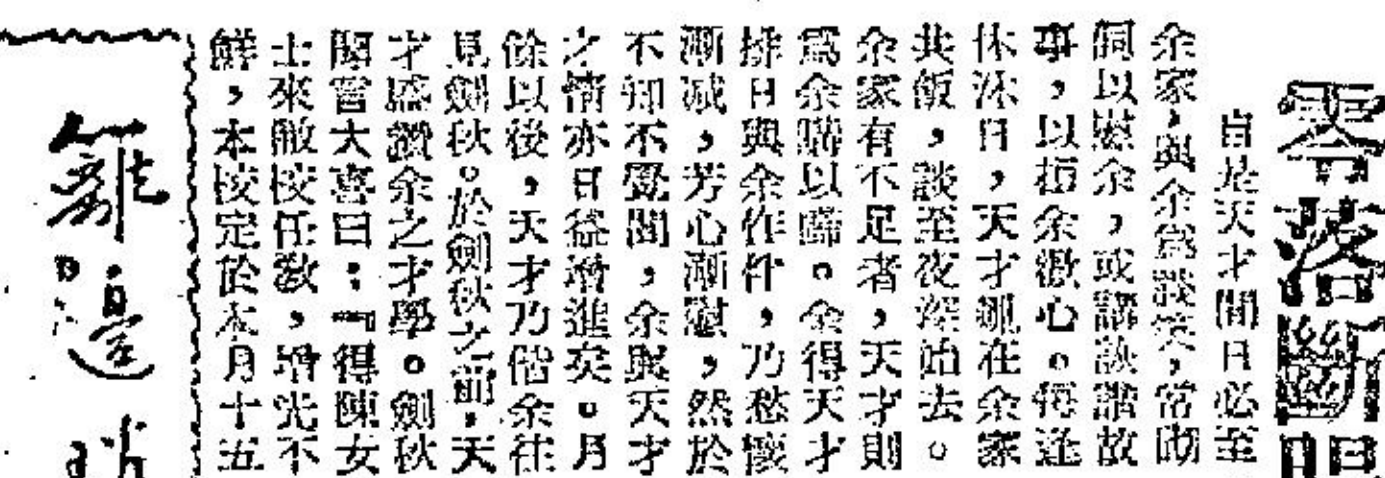 零落斷
自是天才間日必至
余家,與余爲談笑,常助
詞以慰余,或講詼諧故
事,以拒余微心。每逢
休沐日,天才輒在余家
共飯,談至夜深始去。
余家有不足者,天才則
爲余購以歸。余得天才
排日與余作伴,乃愁懷
漸減,芳心漸慰,然於
不知不覺間,余與天才
之情亦日益增進矣。月
餘以後,天才乃偕余往
見劍秋。於劍秋之前,天
才盛讚余之才學。劍秋
聞言大喜曰:『得陳女
士來敝校任敎,增光不
鮮,本校定於本月十五
籬邊